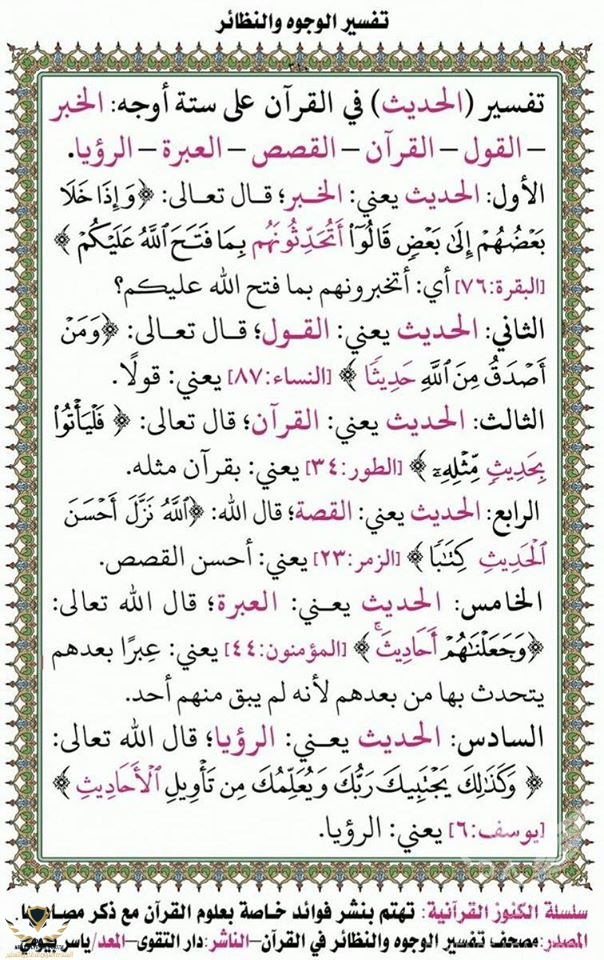 تفسير الوجوه والنظائر
تفسير (الحديث) في القرآن على ستة أوجه: الخبر
– القول – القرآن – القصص – العبرة – الرؤيا.
الأول: الحديث يعني: الخبر؛ قال تعالى: ﴿وَإِذَا خَلَا
بَعْضُهُمْ إِلَىٰ بَعْضٍ قَالُوٓاْ أَتُحَدِّثُونَهُم بِمَا فَتَحَ ٱللَّهُ عَلَيْكُمْ﴾
[البقرة:٧٦] أي: أتخبرونهم بما فتح الله عليكم؟
الثاني: الحديث يعني: القول؛ قال تعالى: ﴿وَمَنْ
أَصْدَقُ مِنَ ٱللَّهِ حَدِيثًا﴾ [النساء:٨٧] يعني: قولًا.
الثالث: الحديث يعني: القرآن؛ قال تعالى: ﴿فَلْيَأْتُواْ
بِحَدِيثٍ مِّثْلِهِۦٓ﴾ [الطور:٣٤] يعني: بقرآن مثله.
الرابع: الحديث يعني: القصة؛ قال الله: ﴿ٱللَّهُ نَزَّلَ أَحْسَنَ
ٱلْحَدِيثِ كِتَٰبًا﴾ [الزمر:٢٣] يعني: أحسن القصص.
الخامس: الحديث يعني: العبرة؛ قال الله تعالى:
﴿وَجَعَلْنَٰهُمْ أَحَادِيثَۚ﴾ [المؤمنون:٤٤] يعني: عِبرًا بعدهم
يتحدث بها من بعدهم لأنه لم يبق منهم أحد.
السادس: الحديث يعني: الرؤيا؛ قال الله تعالى:
﴿وَكَذَٰلِكَ يَجْتَبِيكَ رَبُّكَ وَيُعَلِّمُكَ مِن تَأْوِيلِ ٱلْأَحَادِيثِ﴾
[يوسف:٦] يعني: الرؤيا.
سلسلة الكنوز القرآنية: تهتم بنشر فوائد خاصة بعلوم القرآن مع ذكر مصادرها.
المصدر: مصحف تفسير الوجوه والنظائر في القرآن–الناشر: دار التقوى–المعد/ياسر بيومي